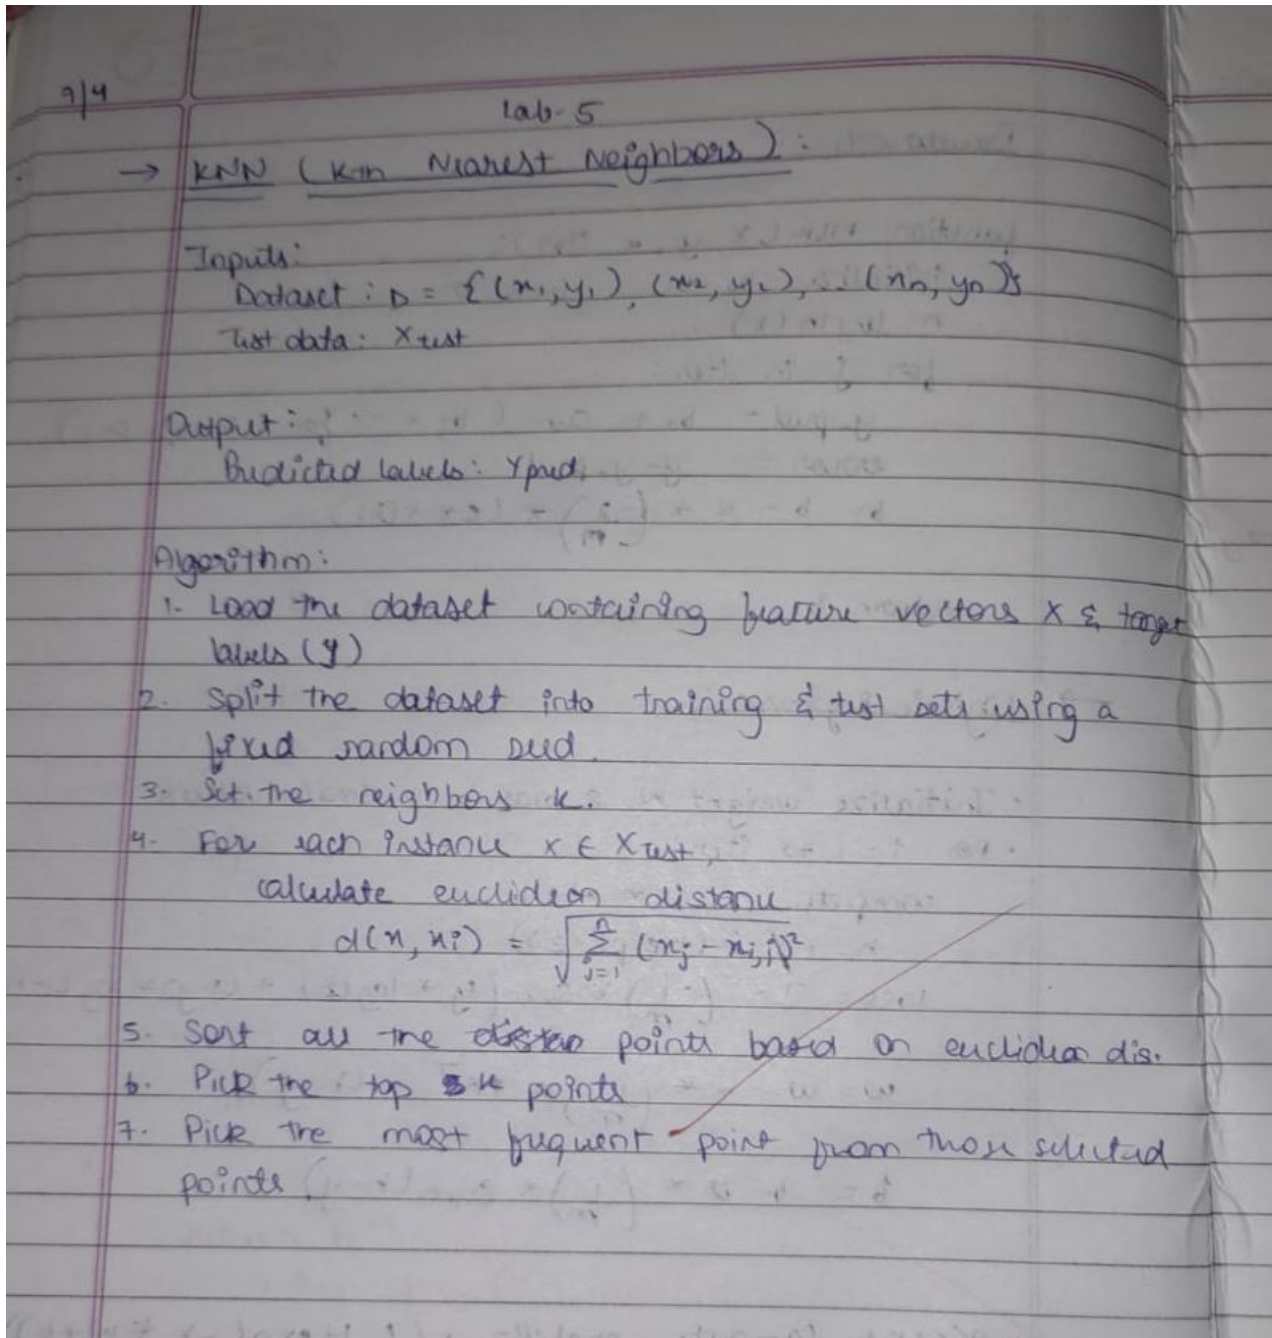 9/4
Lab-5
→ KNN (Kth Nearest Neighbors):
Inputs:
Dataset: D = {(x₁, y₁), (x₂, y₂), .. (xn, yn)}
Test data: Xtest
Output:
Predicted labels: Ypred.
Algorithm:
1. Load the dataset containing feature vectors X & target
labels (y)
2. Split the dataset into training & test sets using a
fixed random seed.
3. Set the neighbors k.
4. For each instance x ∈ Xtest,
calculate euclidean distance
d(x, xi) = √(∑_{j=1}^{n} (xj - xi,j)²)
5. Sort all the points based on euclidean dis.
6. Pick the top k points
7. Pick the most frequent point from those selected
points.